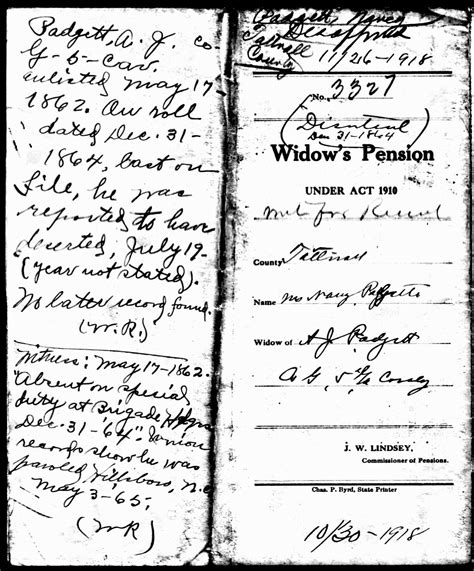 Padgett, A. J. Co
G-5-Cav.
enlisted May 17-
1862. On roll
dated Dec. 31-
1864, last on
file, he was
reported to have
deserted, July 19-
(year not stated).
No later record found.
(W.R.)
Witness: May-17-1862.
"Absent on special
duty at Brigade Hdqrs
Dec. 31-64". Union
records show he was
paroled Hillsboro, N.C.
May 3-65.
(WR)
Padgett, Nancy
Tattnall Disapproved
County 11/26-1918
No. 3327
(
Dec 31-1864)
Widow's Pension
UNDER ACT 1910
County Tattnall
Name Mrs Nancy Padgett
Widow of A J Padgett
Co G, 5 Ga
J. W. LINDSEY,
Commissioner of Pensions.
Chas. P. Byrd, State Printer
10/30-1918